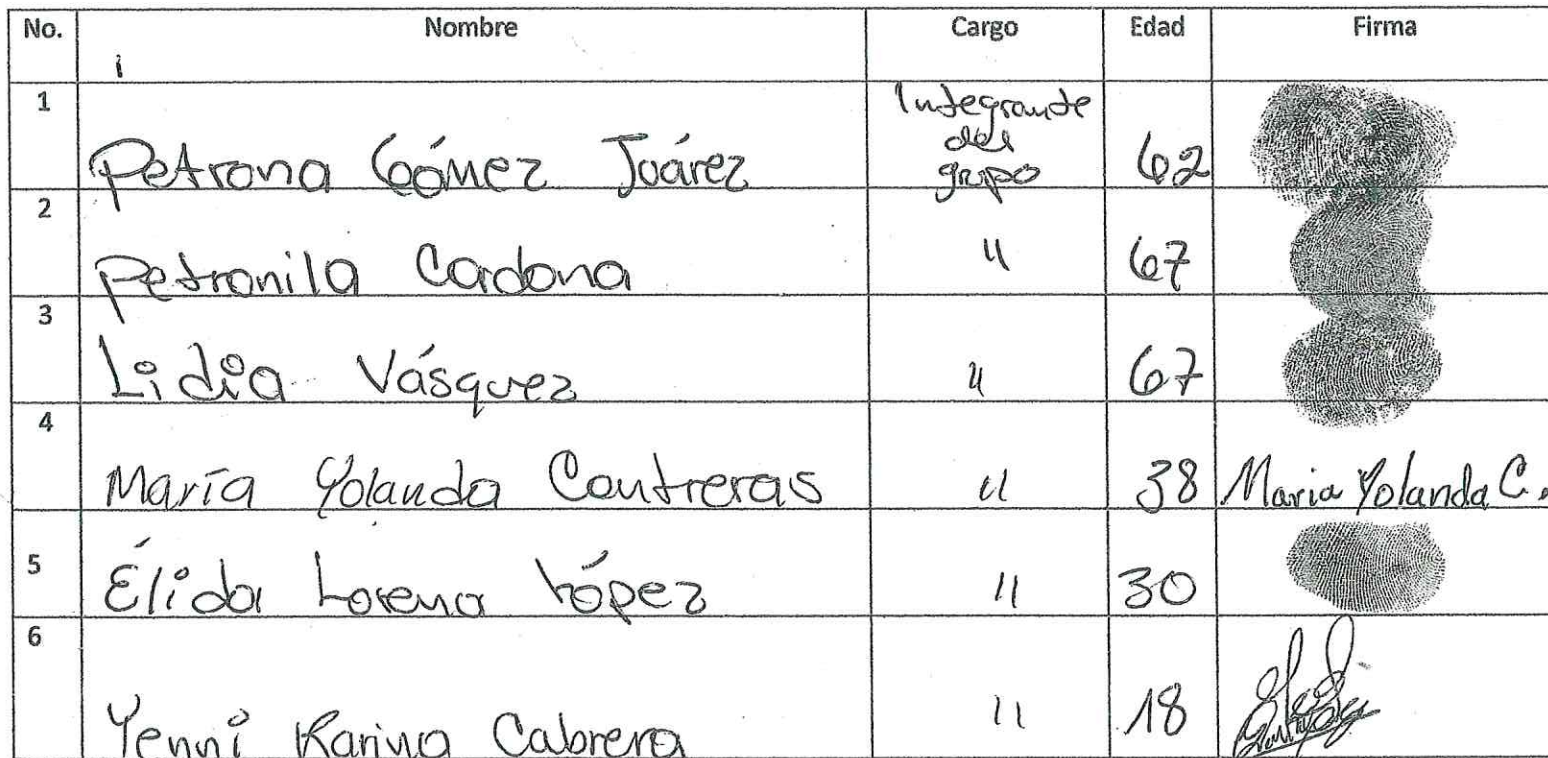 No. Nombre Cargo Edad Firma
1 Petrona Gómez Juárez Integrante del grupo 62
2 Petronila Cardona " 67
3 Lidia Vásquez " 67
4 María Yolanda Contreras " 38 Maria Yolanda C.
5 Élida Lorena López " 30
6 Yenni Karina Cabrera " 18